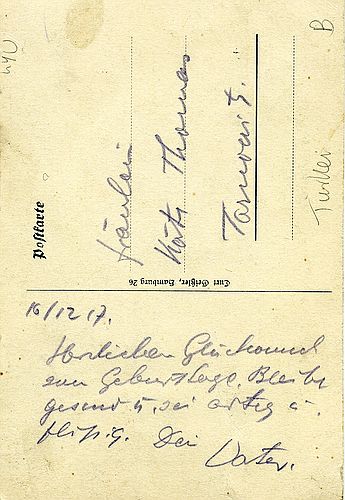 Postkarte
Fräulein
Käte Thomas
Tarnowitz.
Curt Geißler, Hamburg 26
16/12 17.
Herzlichen Glückwunsch
zum Geburtstage. Bleibe
gesund u. sei artig u.
fleißig. Dein
Vater.
Türkei
B